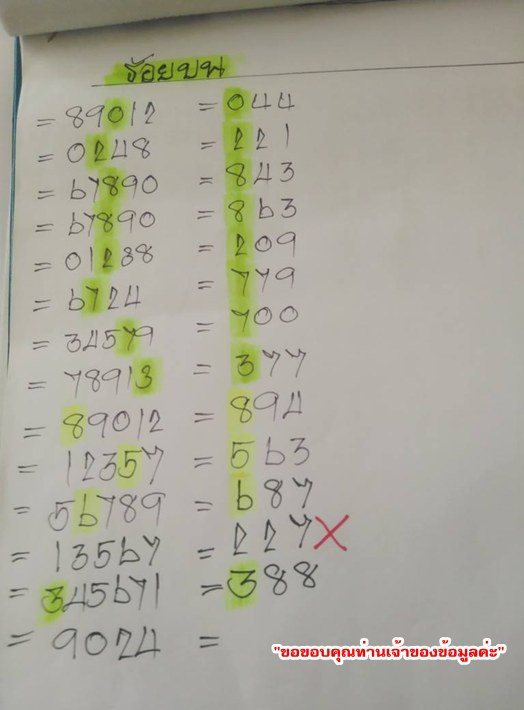 ร้อยบน
= 89012 = 044
= 0248 = 221
= 67890 = 843
= 67890 = 863
= 01238 = 209
= 6724 = 779
= 34579 = 700
= 78913 = 377
= 89012 = 894
= 12357 = 563
= 56789 = 687
= 13567 = 227 X
= 345671 = 388
= 9024 =
"ขอขอบคุณท่านเจ้าของข้อมูลค่ะ"